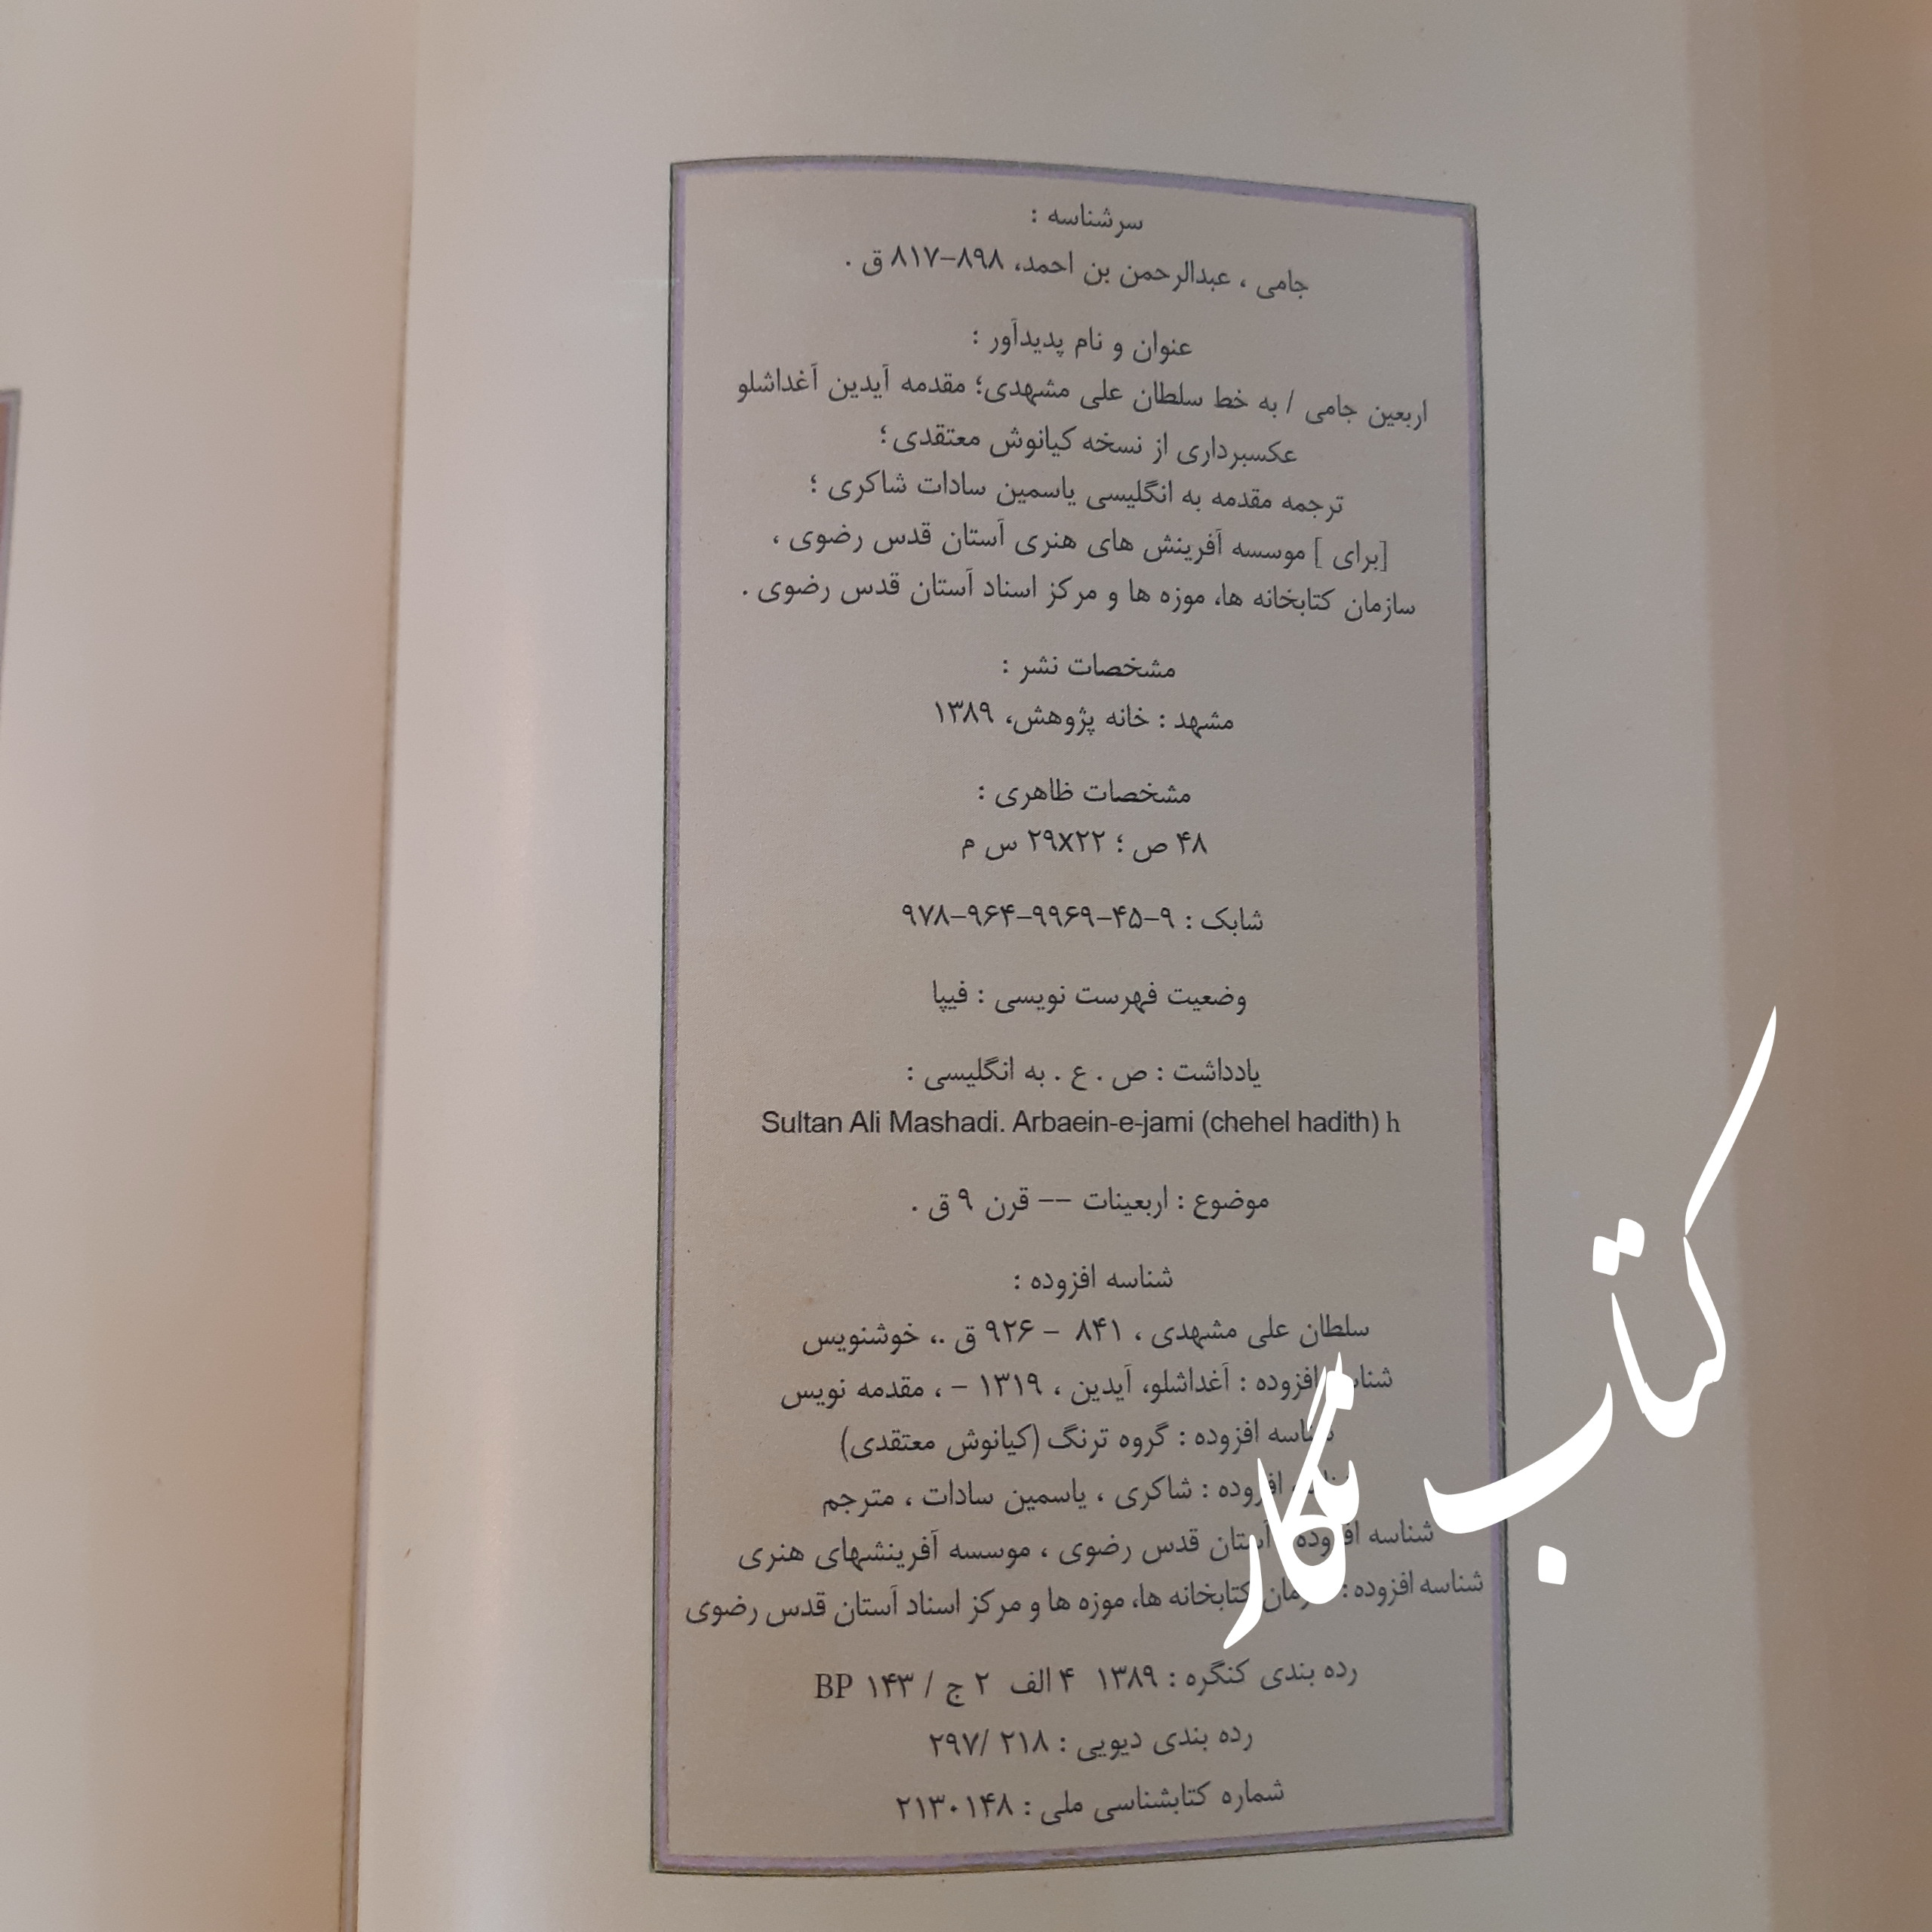 سرشناسه :
جامی ، عبدالرحمن بن احمد، ۸۹۸–۸۱۷ ق .
عنوان و نام پدیدآور :
اربعین جامی / به خط سلطان علی مشهدی؛ مقدمه آیدین آغداشلو
عکسبرداری از نسخه کیانوش معتقدی؛
ترجمه مقدمه به انگلیسی یاسمین سادات شاکری ؛
[برای ] موسسه آفرینش های هنری آستان قدس رضوی ،
سازمان کتابخانه ها، موزه ها و مرکز اسناد آستان قدس رضوی .
مشخصات نشر :
مشهد : خانه پژوهش، ۱۳۸۹
مشخصات ظاهری :
۴۸ ص ؛ ۲۹x۲۲ س م
شابک : ۹–۴۵–۹۹۶۹–۹۶۴–۹۷۸
وضعیت فهرست نویسی : فیپا
یادداشت : ص . ع . به انگلیسی :
Sultan Ali Mashadi. Arbaein-e-jami (chehel hadith) h
موضوع : اربعینات –– قرن ۹ ق .
شناسه افزوده :
سلطان علی مشهدی ، ۸۴۱ – ۹۲۶ ق .، خوشنویس
شناسه افزوده : آغداشلو، آیدین ، ۱۳۱۹ – ، مقدمه نویس
شناسه افزوده : گروه ترنگ (کیانوش معتقدی)
شناسه افزوده : شاکری ، یاسمین سادات ، مترجم
شناسه افزوده : آستان قدس رضوی ، موسسه آفرینشهای هنری
شناسه افزوده : سازمان کتابخانه ها، موزه ها و مرکز اسناد آستان قدس رضوی
رده بندی کنگره : ۱۳۸۹ ۴ الف ۲ ج / ۱۴۳ BP
رده بندی دیویی : ۲۱۸ /۲۹۷
شماره کتابشناسی ملی : ۲۱۳۰۱۴۸
کتاب نگار